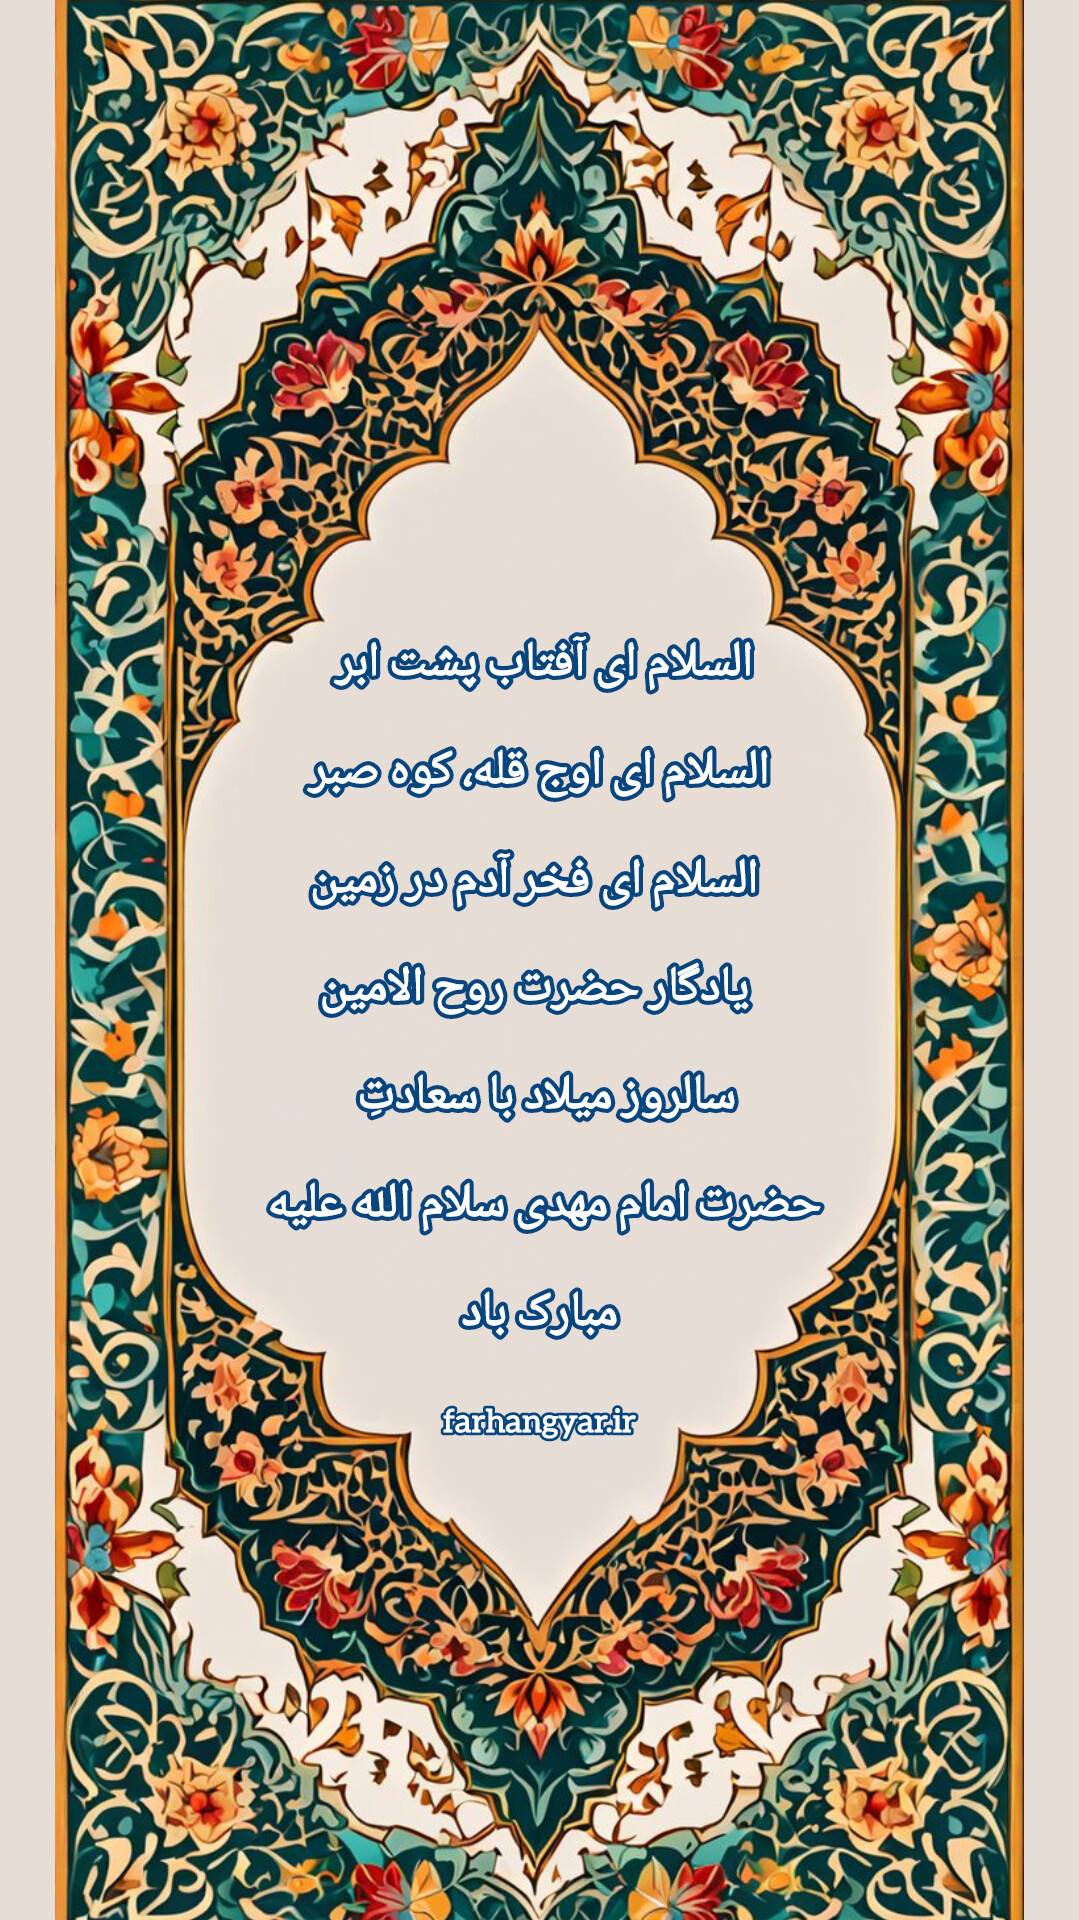 السلام ای آفتاب پشت ابر
السلام ای اوج قله، کوه صبر
السلام ای فخر آدم در زمین
یادگار حضرت روح الامین
سالروز میلاد با سعادتِ
حضرت امام مهدی سلام الله علیه
مبارک باد
farhangyar.ir